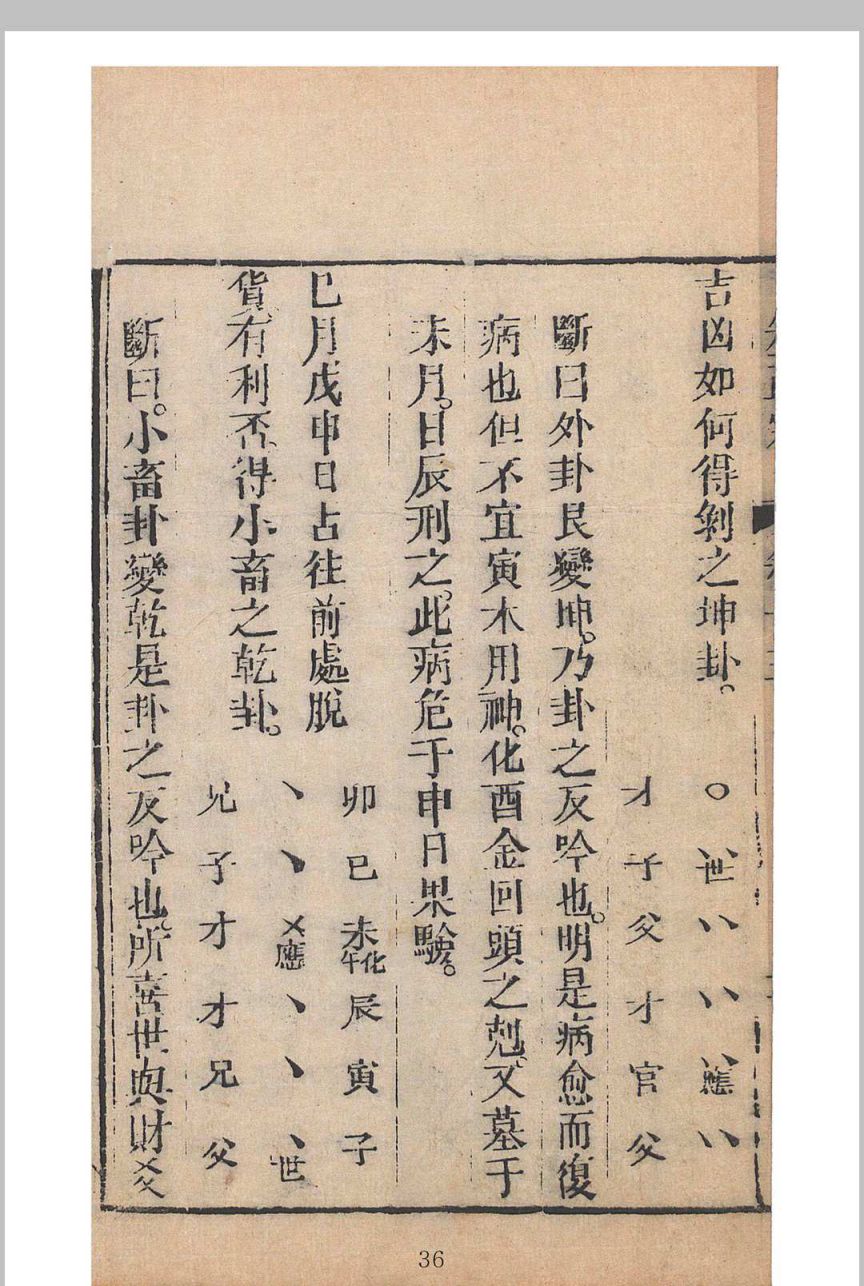 吉凶如何得剝之坤卦。
○ 世〵〵 〵〵 〵〵 應〵〵 〵〵
才 子 父 才 官 父
斷曰外卦艮變坤。乃卦之反吟也。明是病愈而復
病也但不宜寅木用神。化酉金回頭之剋。又墓于
未月。日辰刑之。此病危于申日果驗。
巳月戊申日占往前處脫
卯 巳 未化午 辰 寅 子
貨有利否。得小畜之乾卦。
〵 〵 ㄨ應 〵 〵 〵世
兄 子 才 才 兄 父
斷曰。小畜卦變乾是卦之反吟也。所喜世與財爻
36